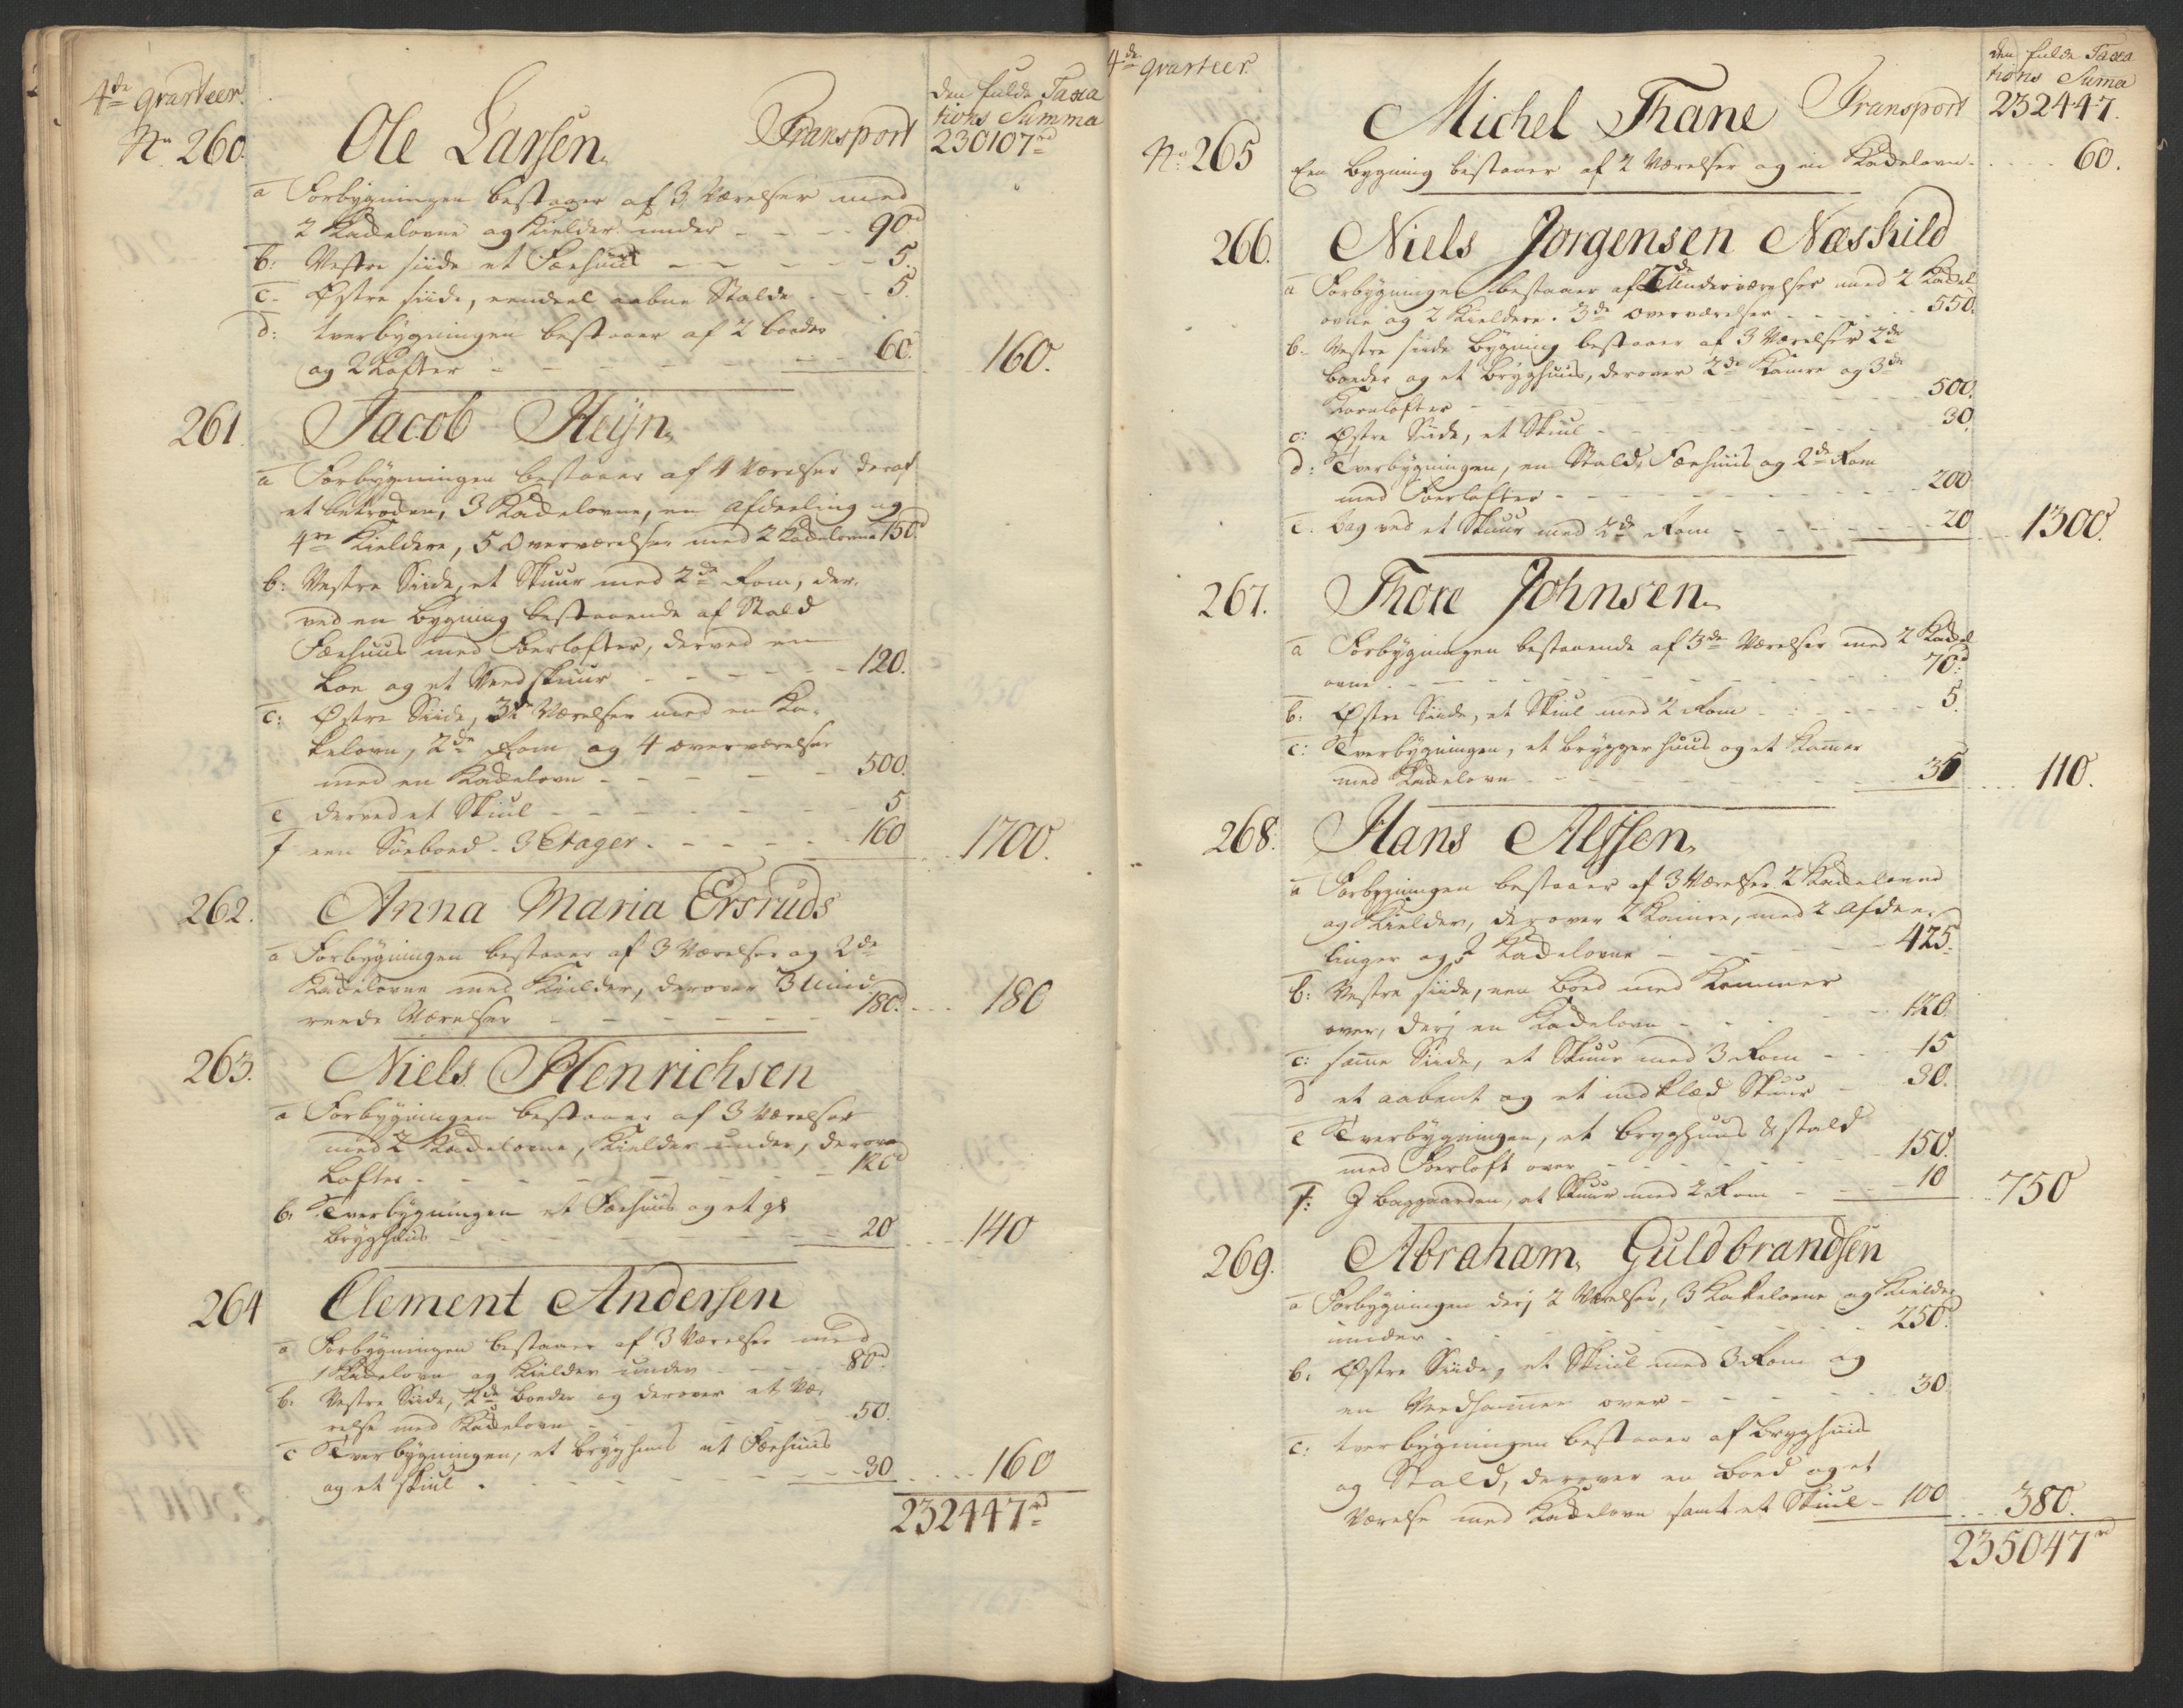 4de Qvarteer.
den fulde Taxa
tions Summa
No 260. Ole Larsen. Transport 230107rd
a Forbygningen bestaaer af 3 Værelser med
2 Kakelovne og Kielder under - - - 90d
b: Vestre siide et Fæehuus - - - 5.
c. Østre siide, eendeel aabne Stalde - - 5.
d: tverbygningen bestaaer af 2 boeder
og 2 Lofter - - - 60. 160.
261. Jacob Heijn.
a Forbygningen bestaaer af 4 Værelser deraf
et betroden, 3 Kakelovne, en Afdeeling og
4re Kieldere, 5 Overværelser med 2 Kakelovne 150.
b: Vestre Siide, et Skuur med 2de Rom, der-
ved en Bygning bestaaende af Stald
Fæehuus med Foerlofter, derved en
Loe og et Vedskuur - - - 120.
c: Østre Siide, 3de Værelser med en Ka-
kelovn, 2de Rom og 4 overværelser
med en Kakelovn - - - 500.
e derved et Skiul - - - 5
f een Søeboed - 3 Etager. - - - 160 1700.
262. Anna Maria Ersruds
a Forbygningen bestaaer af 3 Værelser og 2de
Kakelovne med Kielder, derover 3 uind
reede Værelser - - - 180. 180
263. Niels Henrichsen
a Forbygningen bestaaer af 3 Værelser
med 2 Kakelovne, Kielder under, derover
Lofter - - - 120d
b. Tverbygningen et Fæehuus og et
Bryghuus - - - 20 140
264 Clement Andersen
a Forbygningen bestaaer af 3 Værelser med
1 Kakelovn og Kielder under - - - 80d
b. Vestre Siide, 2de boeder og derover et Væ-
relse med Kakelovn - - - 50.
c Tverbygningen, et bryghuus et Fæehuus
og et skiul. - - - 30 160
232447rd
4de Qvarteer.
den fulde Taxa
tions Suma
Michel Thane Transport 232447.
No 265 Een bygning bestaaer af 2 Værelser og en Kakelovn. - - 60.
266. Niels Jorgensen Næskild
a Forbygningen bestaaer af 7de Underværelser med 2 Kakel
ovne og 2 Kieldere. 3de overværelser - - - 550.
b. Vestre siide bygning bestaaer af 3 Værelser 2de
boeder og et bryghuus, derover 2de Kamre og 3de
Kornlofter - - - 500.
c: Østre Siide, et Skiul - - - 30.
d: Tverbygningen, en Stald, Fæehuus og 2de Rom
med Foerlofter - - - 200
e. bag ved et Skuur med 2de Rom - - - 20 1300.
267. Thore Johnsen.
a Forbygningen bestaaende af 3de Værelser med 2 Kakel
ovne - - - 70d
b. Østre Siide, et Skiul med 2 Rom - - - 5.
c: Tverbygningen, et brygger huus og et Kamer
med Kakelovn - - - 35 110.
268. Hans Alfsen.
a Forbygningen bestaaer af 3 Værelser 2 Kakelovne
og Kielder, derover 2 Kamre, med 2 Afdee-
linger og 2 Kakelovne - - - 425.
b: Vestre siide, een boed med Kammer
over, derj en Kakelovn - - - 120.
c: same Siide, et Skuur med 3 Rom - - 15
d et aabent og et indklæd Skuur - 30.
e Tverbygningen, et bryghuus & stald
med Foerloft over - - - 150.
f: I baggaarden, et Skuur med 2 Rom - - - 10 750
269. Abraham Guldbrandsen
a Forbygningen derj 2 Værelser, 3 Kakelovne og Kielder
under - - - 250d
b. Østre Siide, et Skiul med 3 Rom og
en Vedhamer over - - - 30.
c: tverbygningen bestaaer af bryghuus
og Stald, derover en boed og et
Værelse med Kakelovn samt et Skiul - 100 380.
235047rd